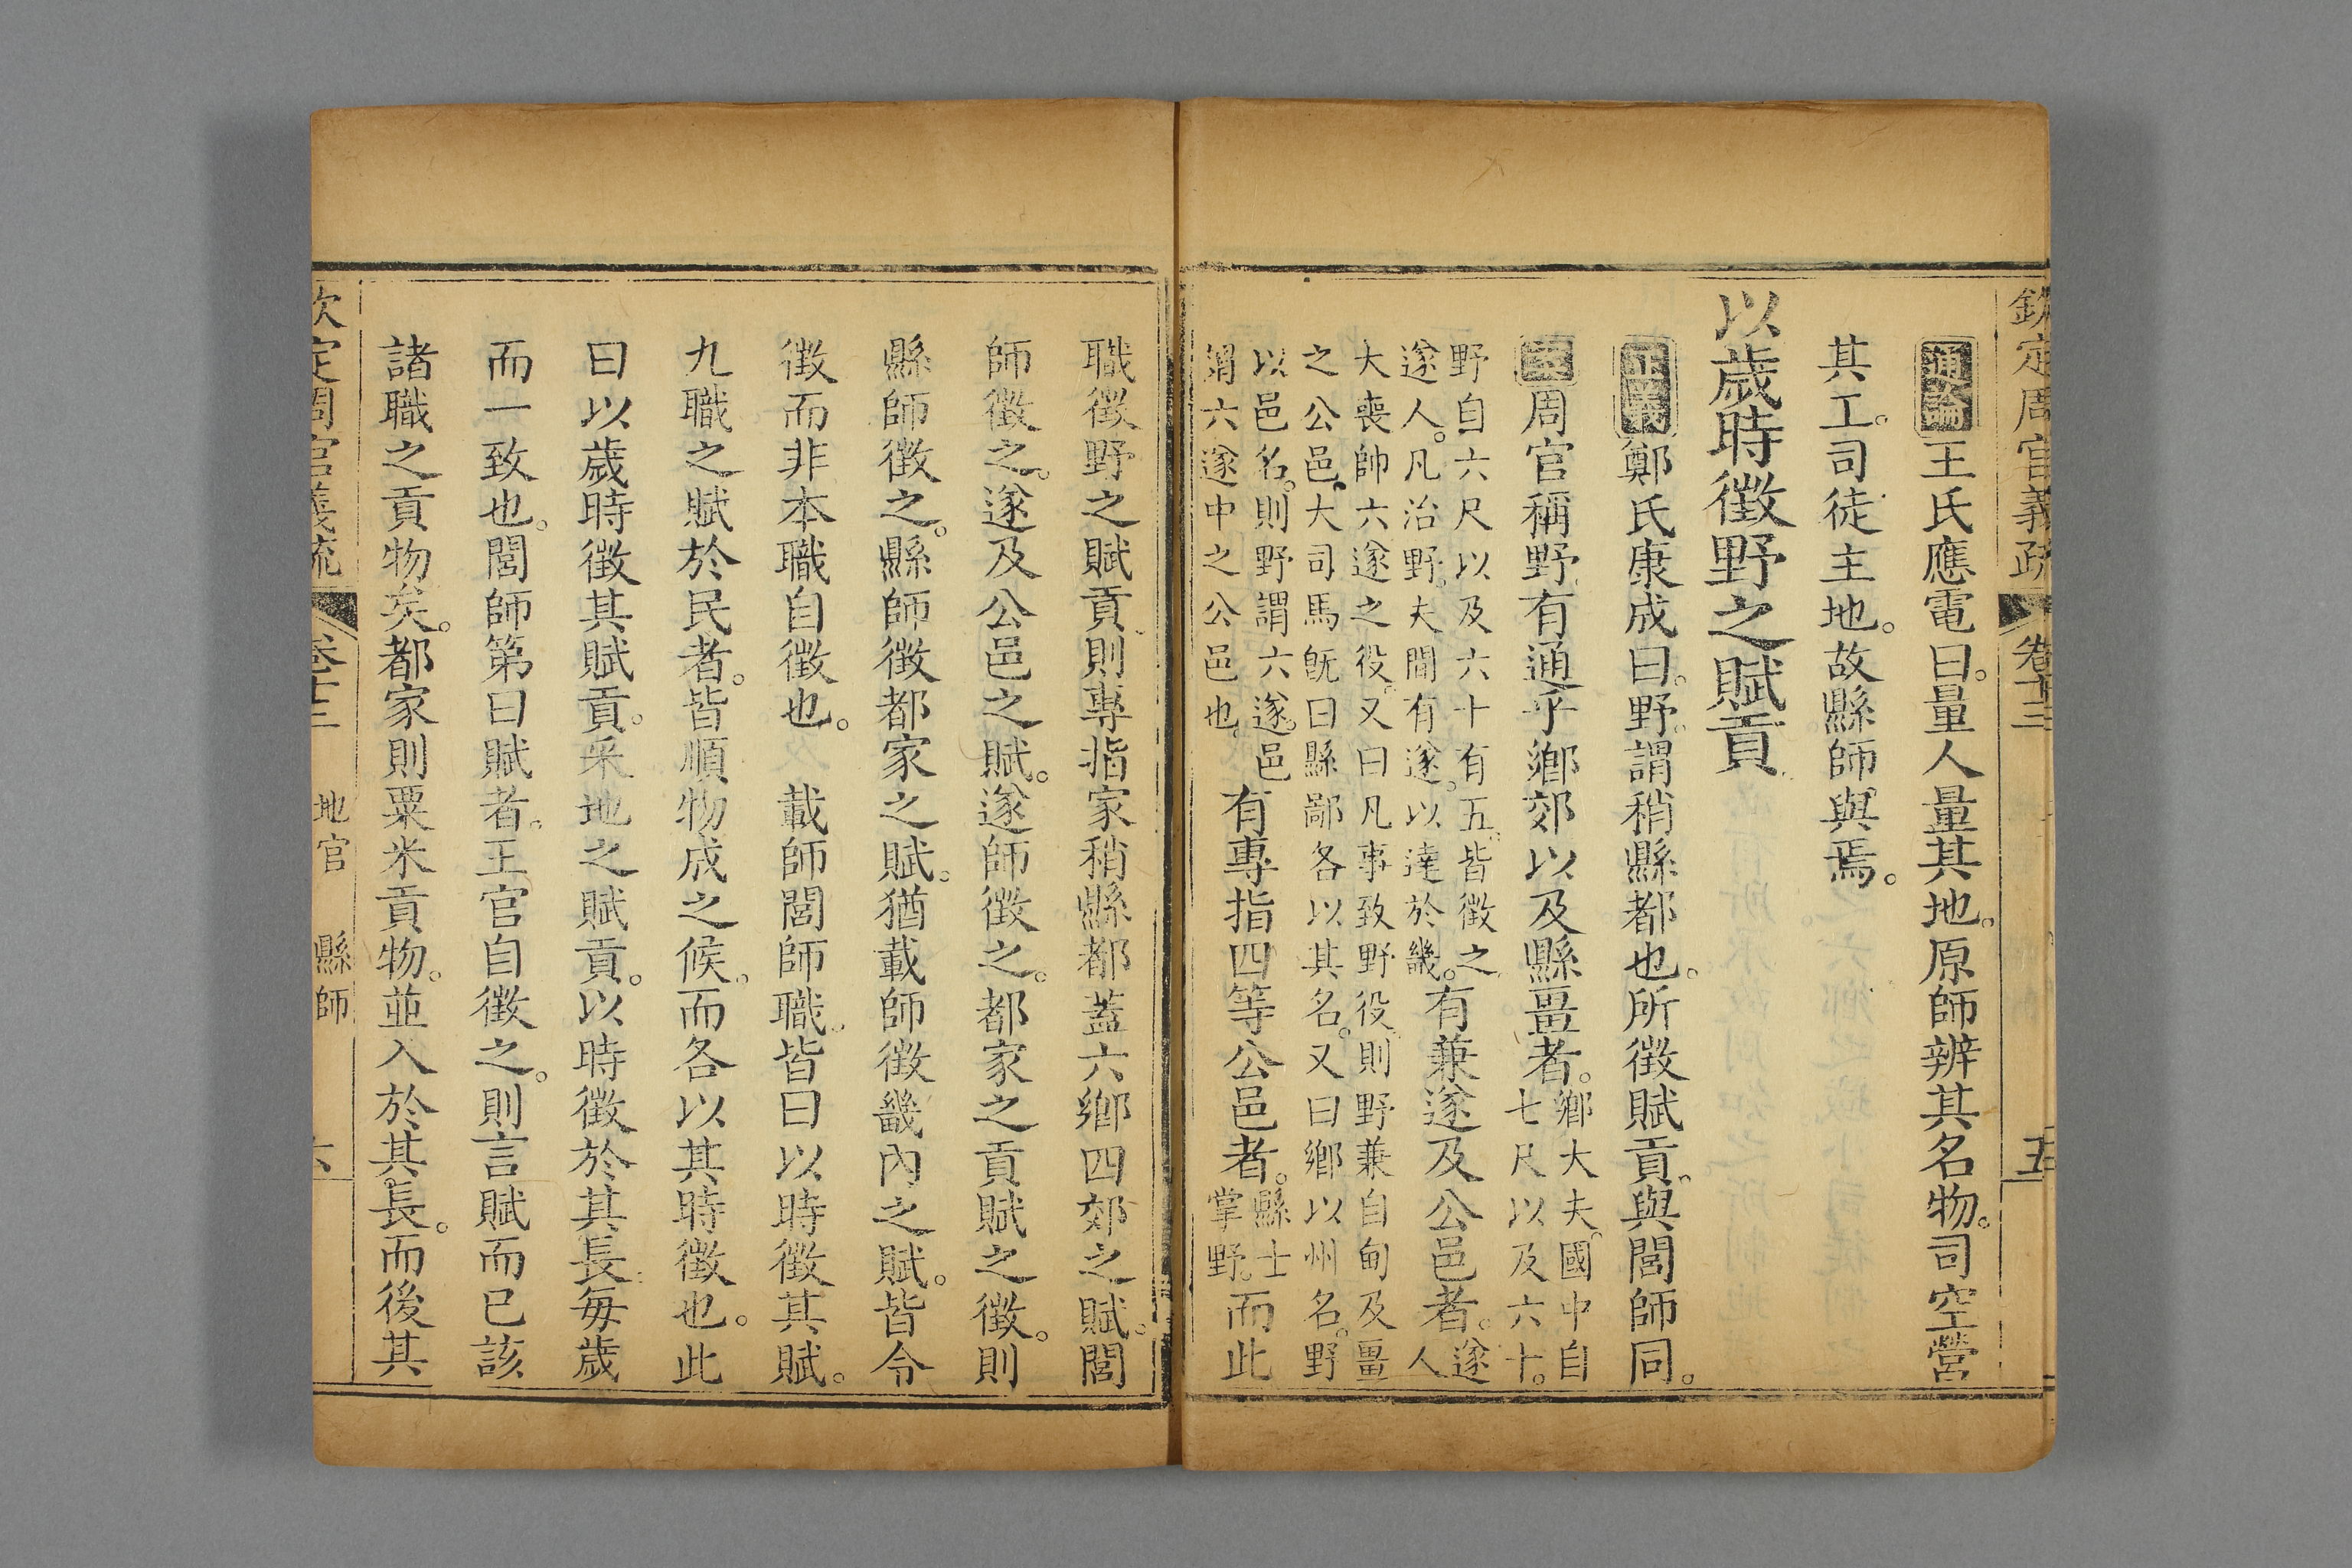 欽定周官義疏 卷十三 五
通論王氏應電曰。量人量其地。原師辨其名物。司空營
其工。司徒主地。故縣師與焉。
以歲時徵野之賦貢
正義鄭氏康成曰。野。謂稍縣都也。所徵賦貢。與閭師同。
周官稱野。有通乎鄉郊以及縣畺者。鄉大夫。國中自
七尺以及六十。
野自六尺以及六十有五。皆徵之
遂人。凡治野。夫閒有遂。以達於畿。有兼遂及公邑者。遂
人
大喪帥六遂之役。又曰凡事致野役。則野兼自甸及畺
之公邑。大司馬旣曰縣鄙各以其名。又曰鄉以州名。野
以邑名。則野謂六遂。邑
謂六遂中之公邑也。有專指四等公邑者。縣士
掌野。而此
職徵野之賦貢。則專指家稍縣都。蓋六鄉四郊之賦。閭
師徵之。遂及公邑之賦。遂師徵之。都家之貢賦之徵。則
縣師徵之。縣師徵都家之賦。猶載師徵畿內之賦。皆令
徵而非本職自徵也。 載師閭師職。皆曰以時徵其賦。
九職之賦於民者。皆順物成之候。而各以其時徵也。此
曰以歲時徵其賦貢。采地之賦貢。以時徵於其長。每歲
而一致也。閭師第曰賦者。王官自徵之。則言賦而已該
諸職之貢物矣。都家則粟米貢物。並入於其長。而後其
欽定周官義疏 卷十三 地官 縣師 六